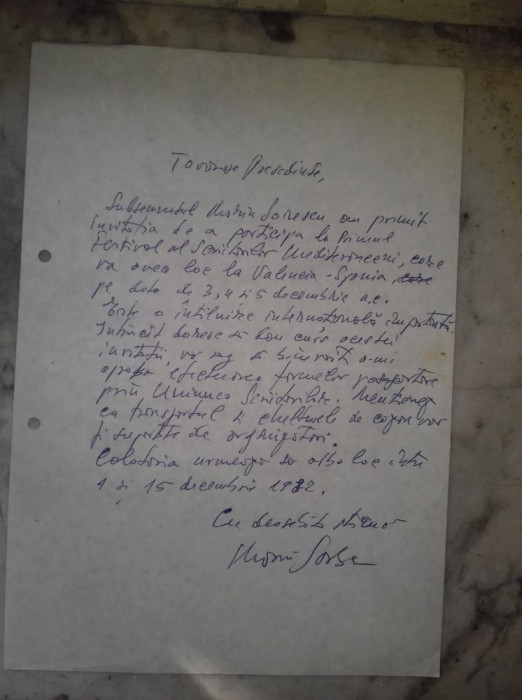 Tovarășe Președinte,
Subsemnatul Marin Sorescu am primit
invitația de a participa la Primul
Festival al Scriitorilor Mediteraneeni, care
va avea loc la Valencia - Spania, care
pe data de 3, 4 și 5 decembrie a.c.
Este o întîlnire internațională importantă.
Întrucît doresc să dau curs acestei
invitații, vă rog să binevoiți a-mi
aproba efectuarea formelor
prin Uniunea Scriitorilor. Menționez
ca transportul și cheltuielile de vor
fi suportate de organizatori.
Călătoria urmează să aibă loc între
1 și 15 decembrie 1982.
Cu deosebită stimă
Marin Sorescu